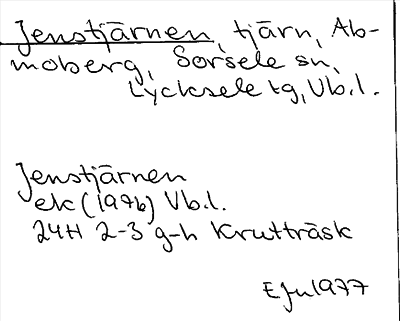 Jenstjärnen, tjärn, Ab-
moberg, Sorsele sn,
Lycksele tg, Vb.l.
Jenstjärnen
ek (1976) Vb.l.
24H 2-3 g-h Krutträsk
EJu1977